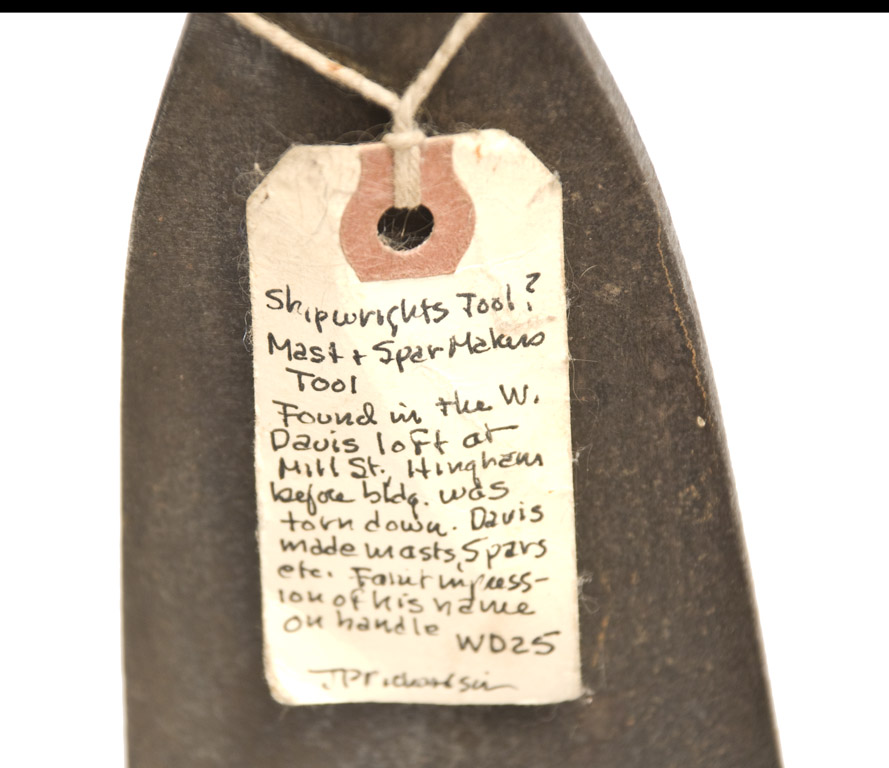 Shipwrights Tool?
Mast + Spar Makers
Tool
Found in the W.
Davis loft at
Mill St., Hingham
before bldg. was
torn down. Davis
made masts, Spars
etc. Faint impress-
ion of his name
on handle
WD25
JPRichardson